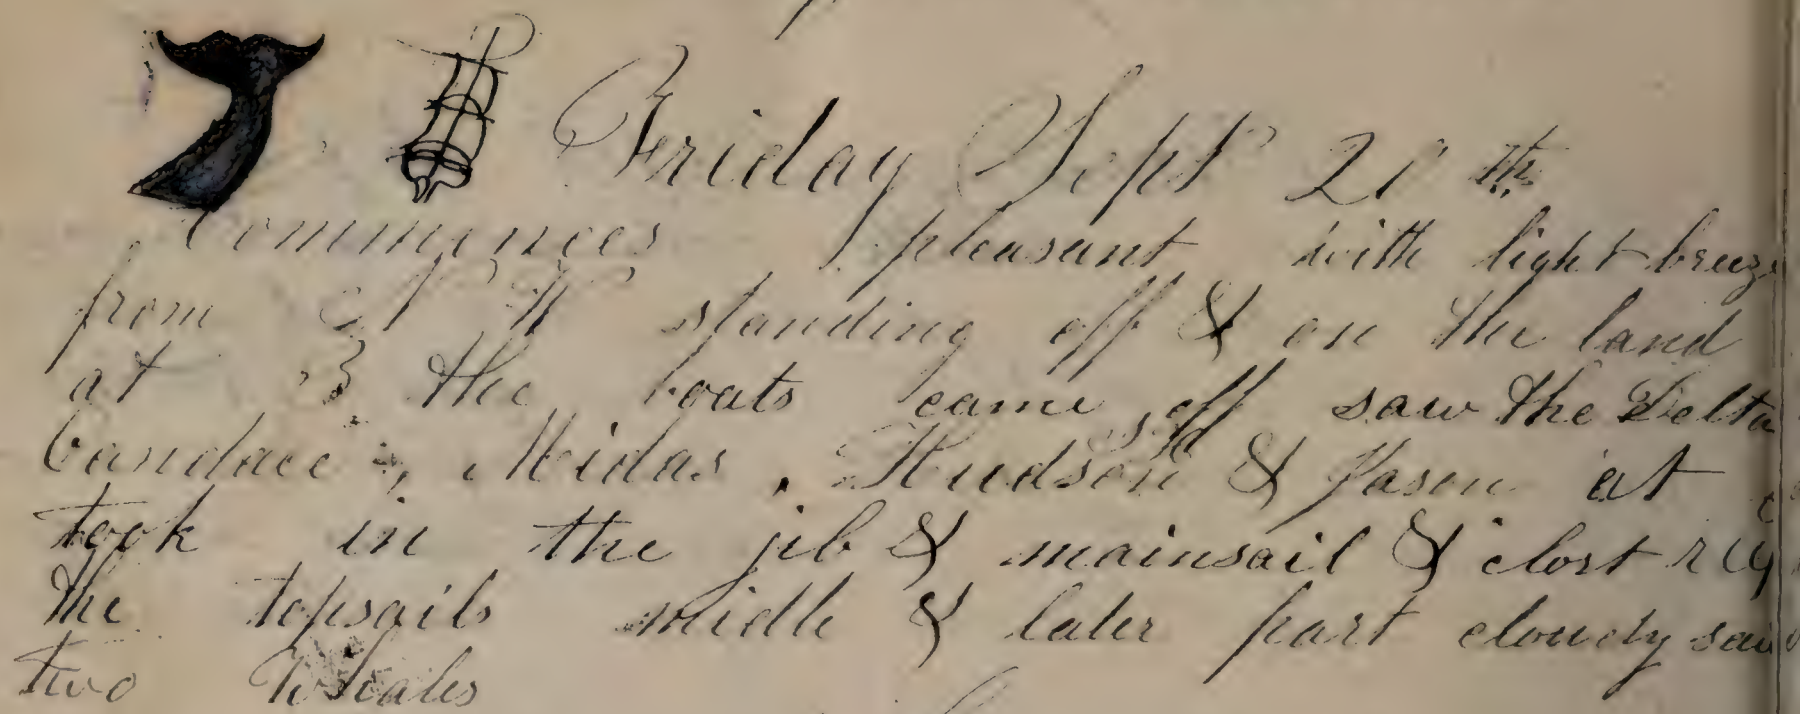 Friday Sept 21th
Commences pleasant with light breez
from standing off & on the land
at 3 the boats came off saw the Delta
Candace, Midas, Hudson & Jason at
took in the jib & mainsail & clost
the topsails midle & later part cloudy saw
two Whales